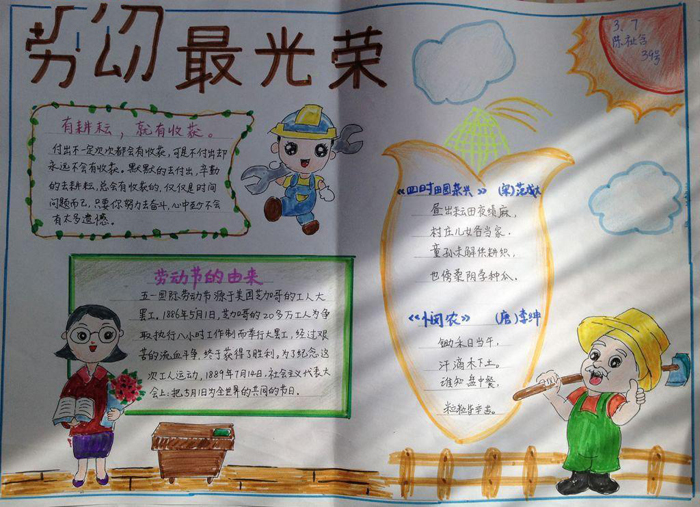 劳动最光荣
3.7
39号
有耕耘，就有收获。
付出不一定次次都会有收获，可是不付出却
永远不会有收获。默默的去付出，辛勤
的去耕耘，总会有收获的，仅仅是时间
问题而已，只要你努力去奋斗，心中至少不会
有太多遗憾。
劳动节的由来
五一国际劳动节源于美国芝加哥的工人大
罢工。1886年5月1日，芝加哥的20多万工人为争
取执行八小时工作制而举行大罢工，经过艰
苦的流血斗争，终于获得了胜利。为了纪念这
次工人运动，1889年7月14日，社会主义代表大
会上：把5月1日为全世界的共同的节日。
《四时田园杂兴》 (宋)范成大
昼出耘田夜绩麻，
村庄儿女各当家。
童孙未解供耕织，
也傍桑阴学种瓜。
《悯农》 (唐)李绅
锄禾日当午，
汗滴禾下土。
谁知盘中餐，
粒粒皆辛苦。